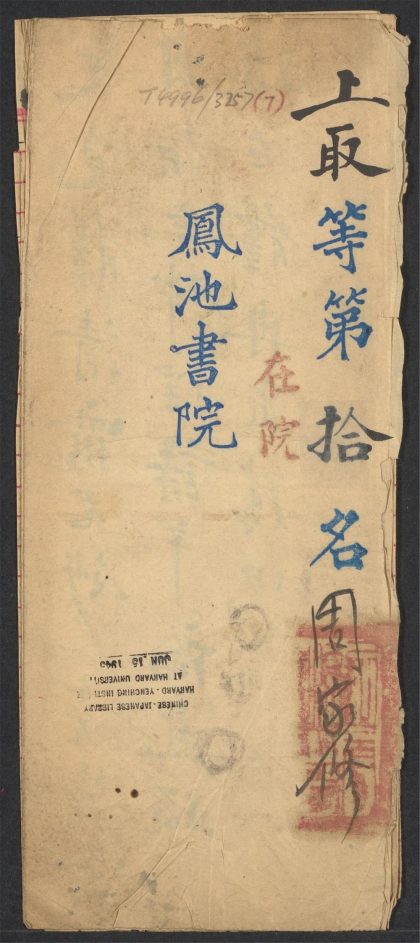 T4996/3257(7)
上取等第拾名周家修
在院
鳳池書院
CHINESE-JAPANESE LIBRARY
HARVARD-YENCHING INSTI
AT HARVARD UNIVERSITY
JUN 15 1945